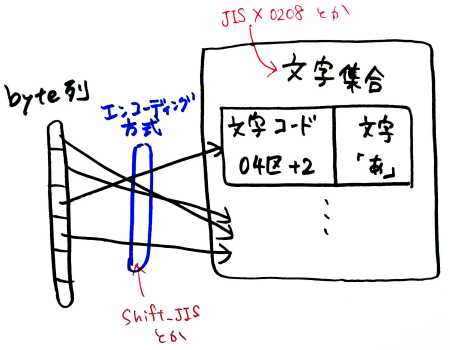 JIS X 0208 とか
文字集合
byte列
エンコーディング
方式
文字コード
文字
04区+2
「あ」
Shift_JIS
とか